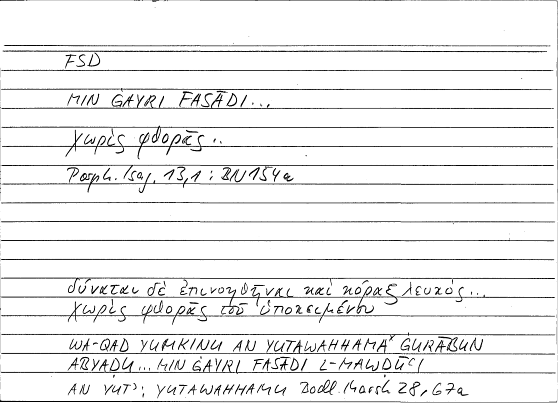 FSD
MIN ĠAYRI FASĀDI...
χωρὶς φθορᾶς..
Porph. Isag. 13,1 : BN 154a
δύναται δὲ ἐπινοηθῆναι καὶ κόραξ λευκός...
χωρὶς φθορᾶς τοῦ ὑποκειμένου
WA-QAD YUMKINU AN YUTAWAHHAMAˣ ĠURĀBUN
ABYAḌU... MIN ĠAYRI FASĀDI L-MAWḌŪʿI
AN YUTʾ: YUTAWAHHAMU Bodl. Marsh 28, 67a